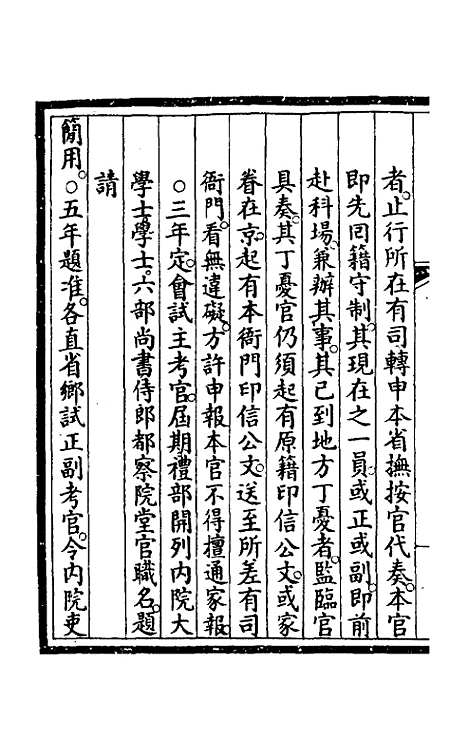 者。止行所在有司轉申本省撫按官代奏。本官
即先回籍守制。其現在之一員。或正或副。即前
赴科場。兼辦其事。其已到地方丁憂者。監臨官
具奏。其丁憂官仍須起有原籍印信公文。或家
眷在京。起有本衙門印信公文。送至所差有司
衙門。看無違礙。方許申報本官不得擅通家報。
○三年定。會試主考官。屆期禮部開列內院大
學士。學士。六部尚書侍郎都察院堂官職名。題
請
簡用。○五年題准。各直省鄉試正副考官。令內院吏